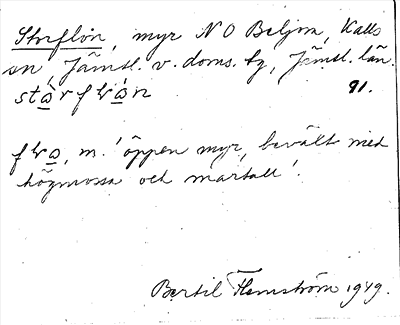 Storflon, myr NO Baljon, Kalls
sn, Jämtl. v. doms. tg, Jämtl. län.
stàrflán 91.
fla, m. 'öppen myr, bevält med
högmossa och martall'.
Bertil Flemström 1949.